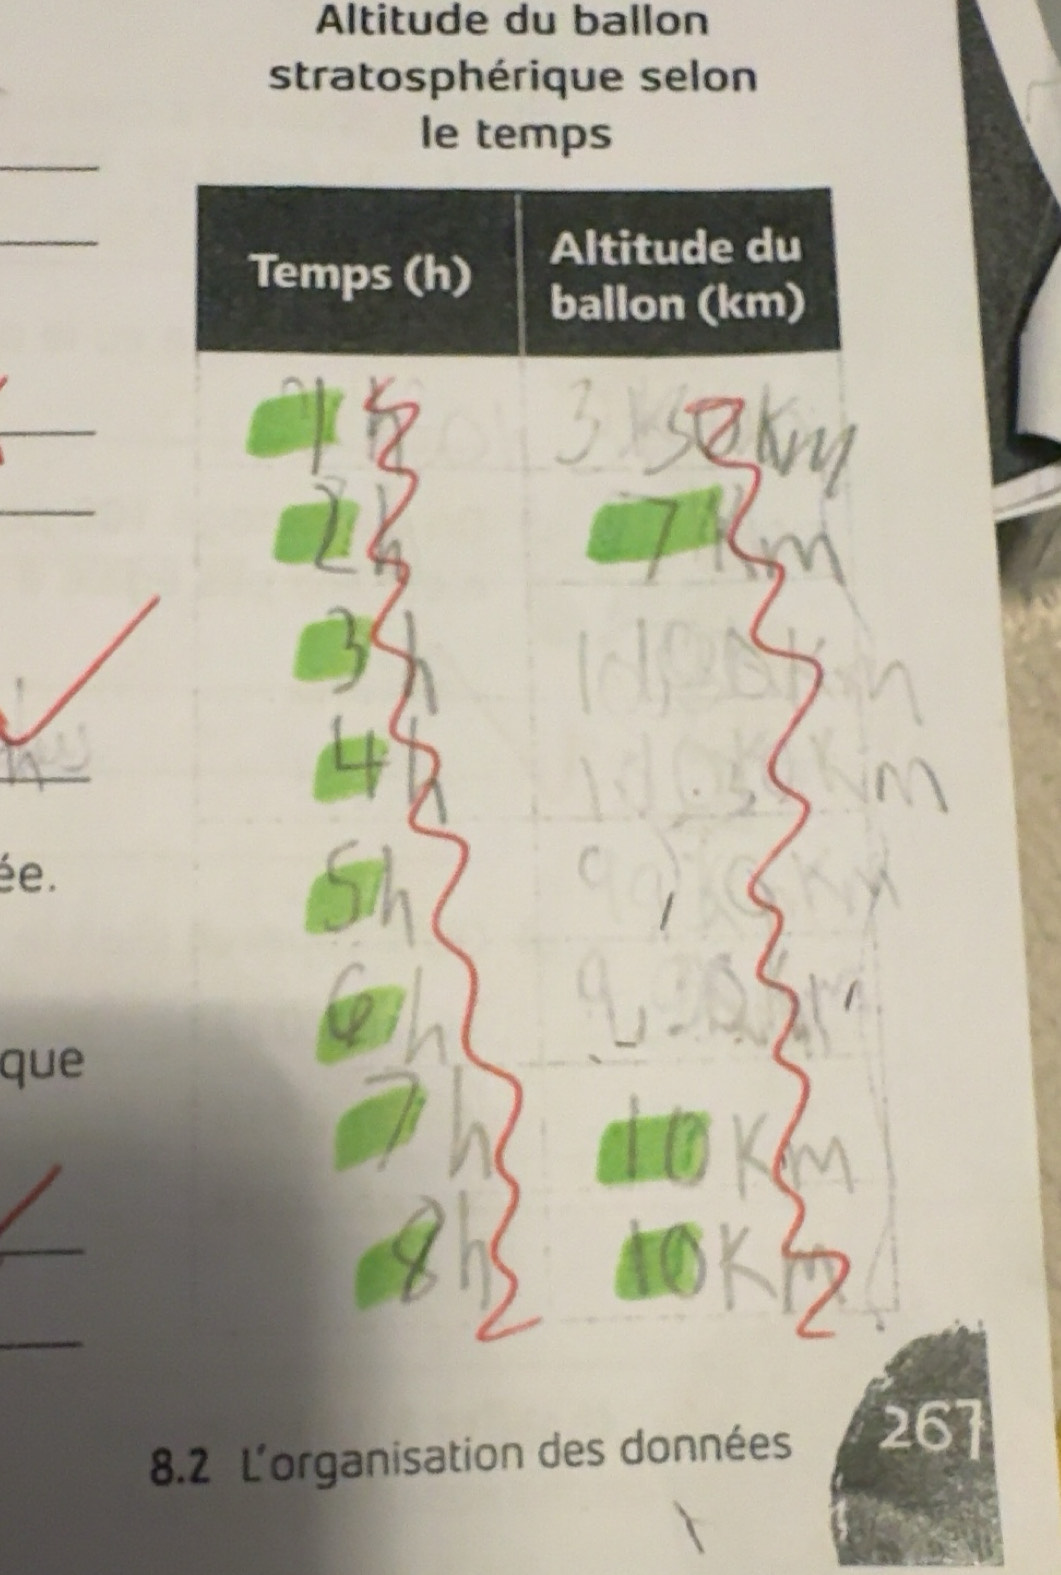 Altitude du ballon
stratosphérique selon
le temps
Temps (h)
Altitude du
ballon (km)
1 h
2h 7 Km
3 h
4h
5h
6h
7 h 10 Km
8h 10 Km
ée.
que
8.2 L'organisation des données
267